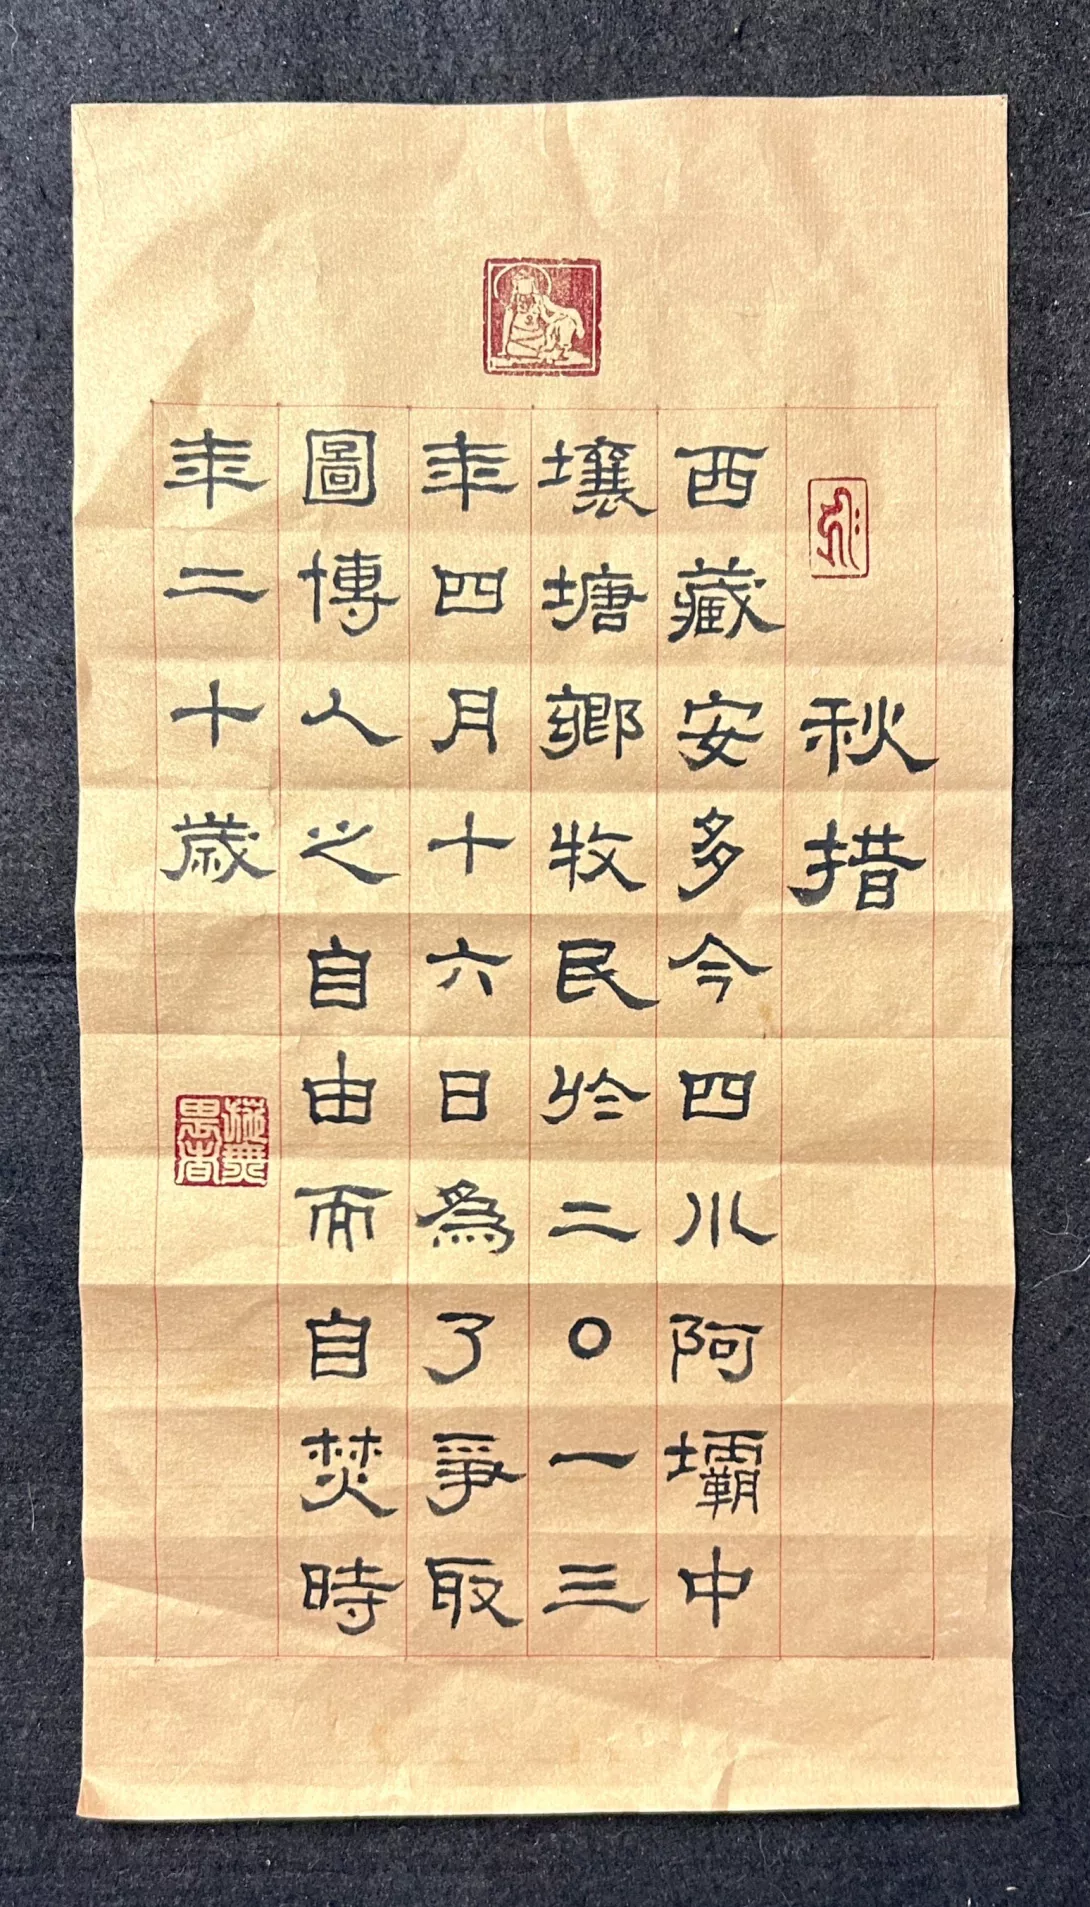 秋措
西藏安多今四川阿壩中
壤塘鄉牧民於二〇一三
年四月十六日為了爭取
圖博人之自由而自焚時
年二十歲